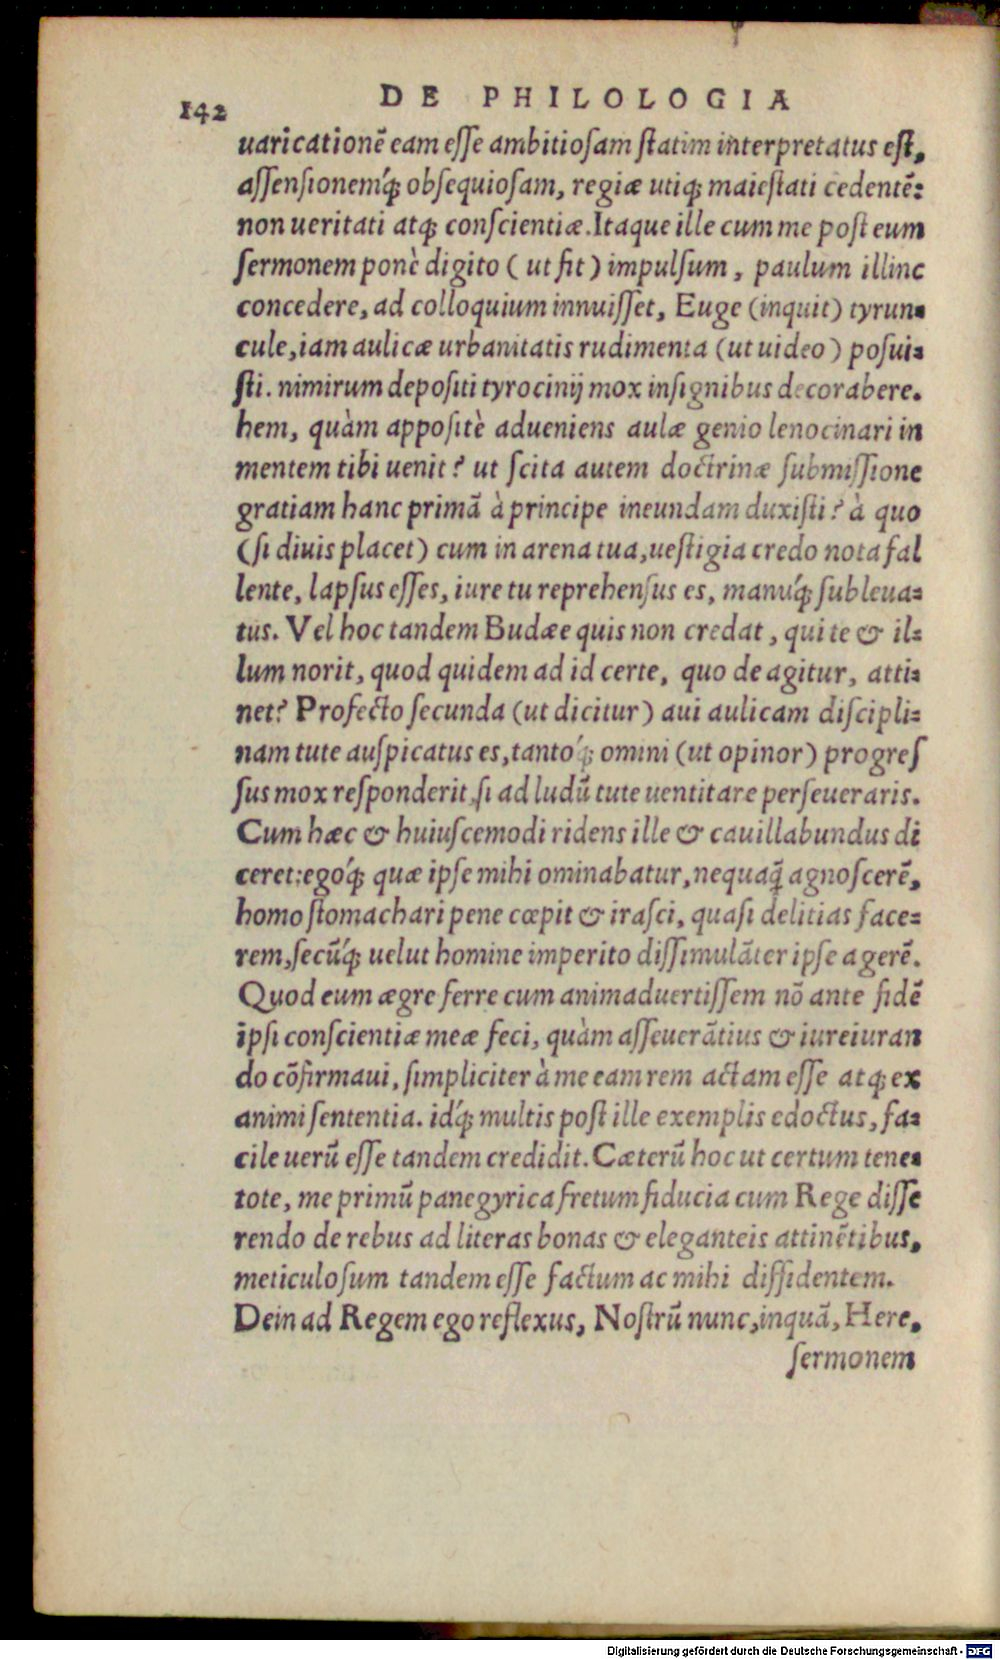 142
DE PHILOLOGIA
uaricationē eam eſſe ambitioſam ſtatim interpretatus eſt,
aſſenſionemq́; obſequioſam, regiæ utiq; maieſtati cedentē:
non ueritati atq; conſcientiæ. Itaque ille cum me poſt eum
ſermonem ponè digito ( ut fit ) impulſum, paulum illinc
concedere, ad colloquium innuiſſet, Euge (inquit) tyrun-
cule, iam aulicæ urbanitatis rudimenta (ut uideo) poſui-
ſti. nimirum depoſiti tyrocinij mox inſignibus decorabere.
hem, quàm appoſitè adueniens aulæ genio lenocinari in
mentem tibi uenit? ut ſcita autem doctrinæ ſubmiſſione
gratiam hanc primā à principe ineundam duxiſti? à quo
(ſi diuis placet) cum in arena tua, ueſtigia credo nota fal
lente, lapſus eſſes, iure tu reprehenſus es, manuq́; ſubleua-
tus. Vel hoc tandem Budæe quis non credat, qui te & il-
lum norit, quod quidem ad id certe, quo de agitur, atti-
net? Profecto ſecunda (ut dicitur) aui aulicam diſcipli-
nam tute auſpicatus es, tantoq́; omini (ut opinor) progreſ
ſus mox reſponderit, ſi ad ludū tute uentitare perſeueraris.
Cum hæc & huiuſcemodi ridens ille & cauillabundus di
ceret: egoq́; quæ ipſe mihi ominabatur, nequaq̃ agnoſcerē,
homo ſtomachari pene cœpit & iraſci, quaſi delitias face-
rem, ſecūq́; uelut homine imperito diſſimulāter ipſe agerē.
Quod eum ægre ferre cum animaduertiſſem nō ante fidē
ipſi conſcientiæ meæ feci, quàm aſſeuerātius & iureiuran
do cōfirmaui, ſimpliciter à me eam rem actam eſſe atq; ex
animi ſententia. idq́; multis poſt ille exemplis edoctus, fa-
cile uerū eſſe tandem credidit. Cæterū hoc ut certum tene-
tote, me primū panegyrica fretum fiducia cum Rege diſſe
rendo de rebus ad literas bonas & eleganteis attinētibus,
meticuloſum tandem eſſe factum ac mihi diffidentem.
Dein ad Regem ego reflexus, Noſtrū nunc, inquā, Here,
ſermonem
Digitalisierung gefördert durch die Deutsche Forschungsgemeinschaft - DFG